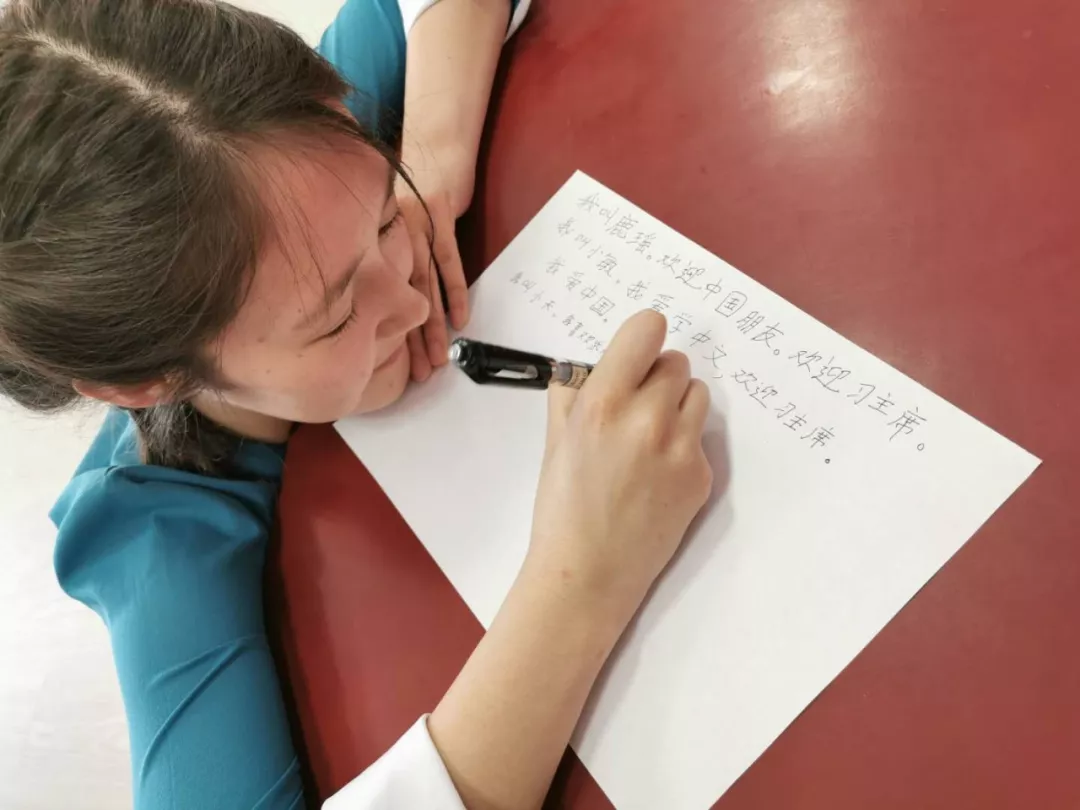 我叫鹿瑶。欢迎中国朋友。欢迎习主席。
我叫小鱼。我爱学中文,欢迎习主席。
我爱中国。
我叫小天,我喜欢